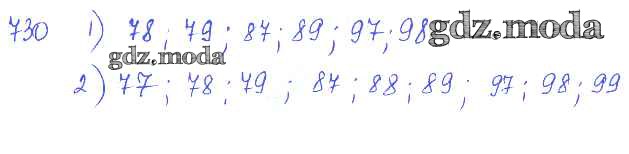 730 1) 78; 79; 87; 89; 97; 98 gdz.moda
gdz.moda
2) 77; 78; 79; 87; 88; 89; 97; 98; 99